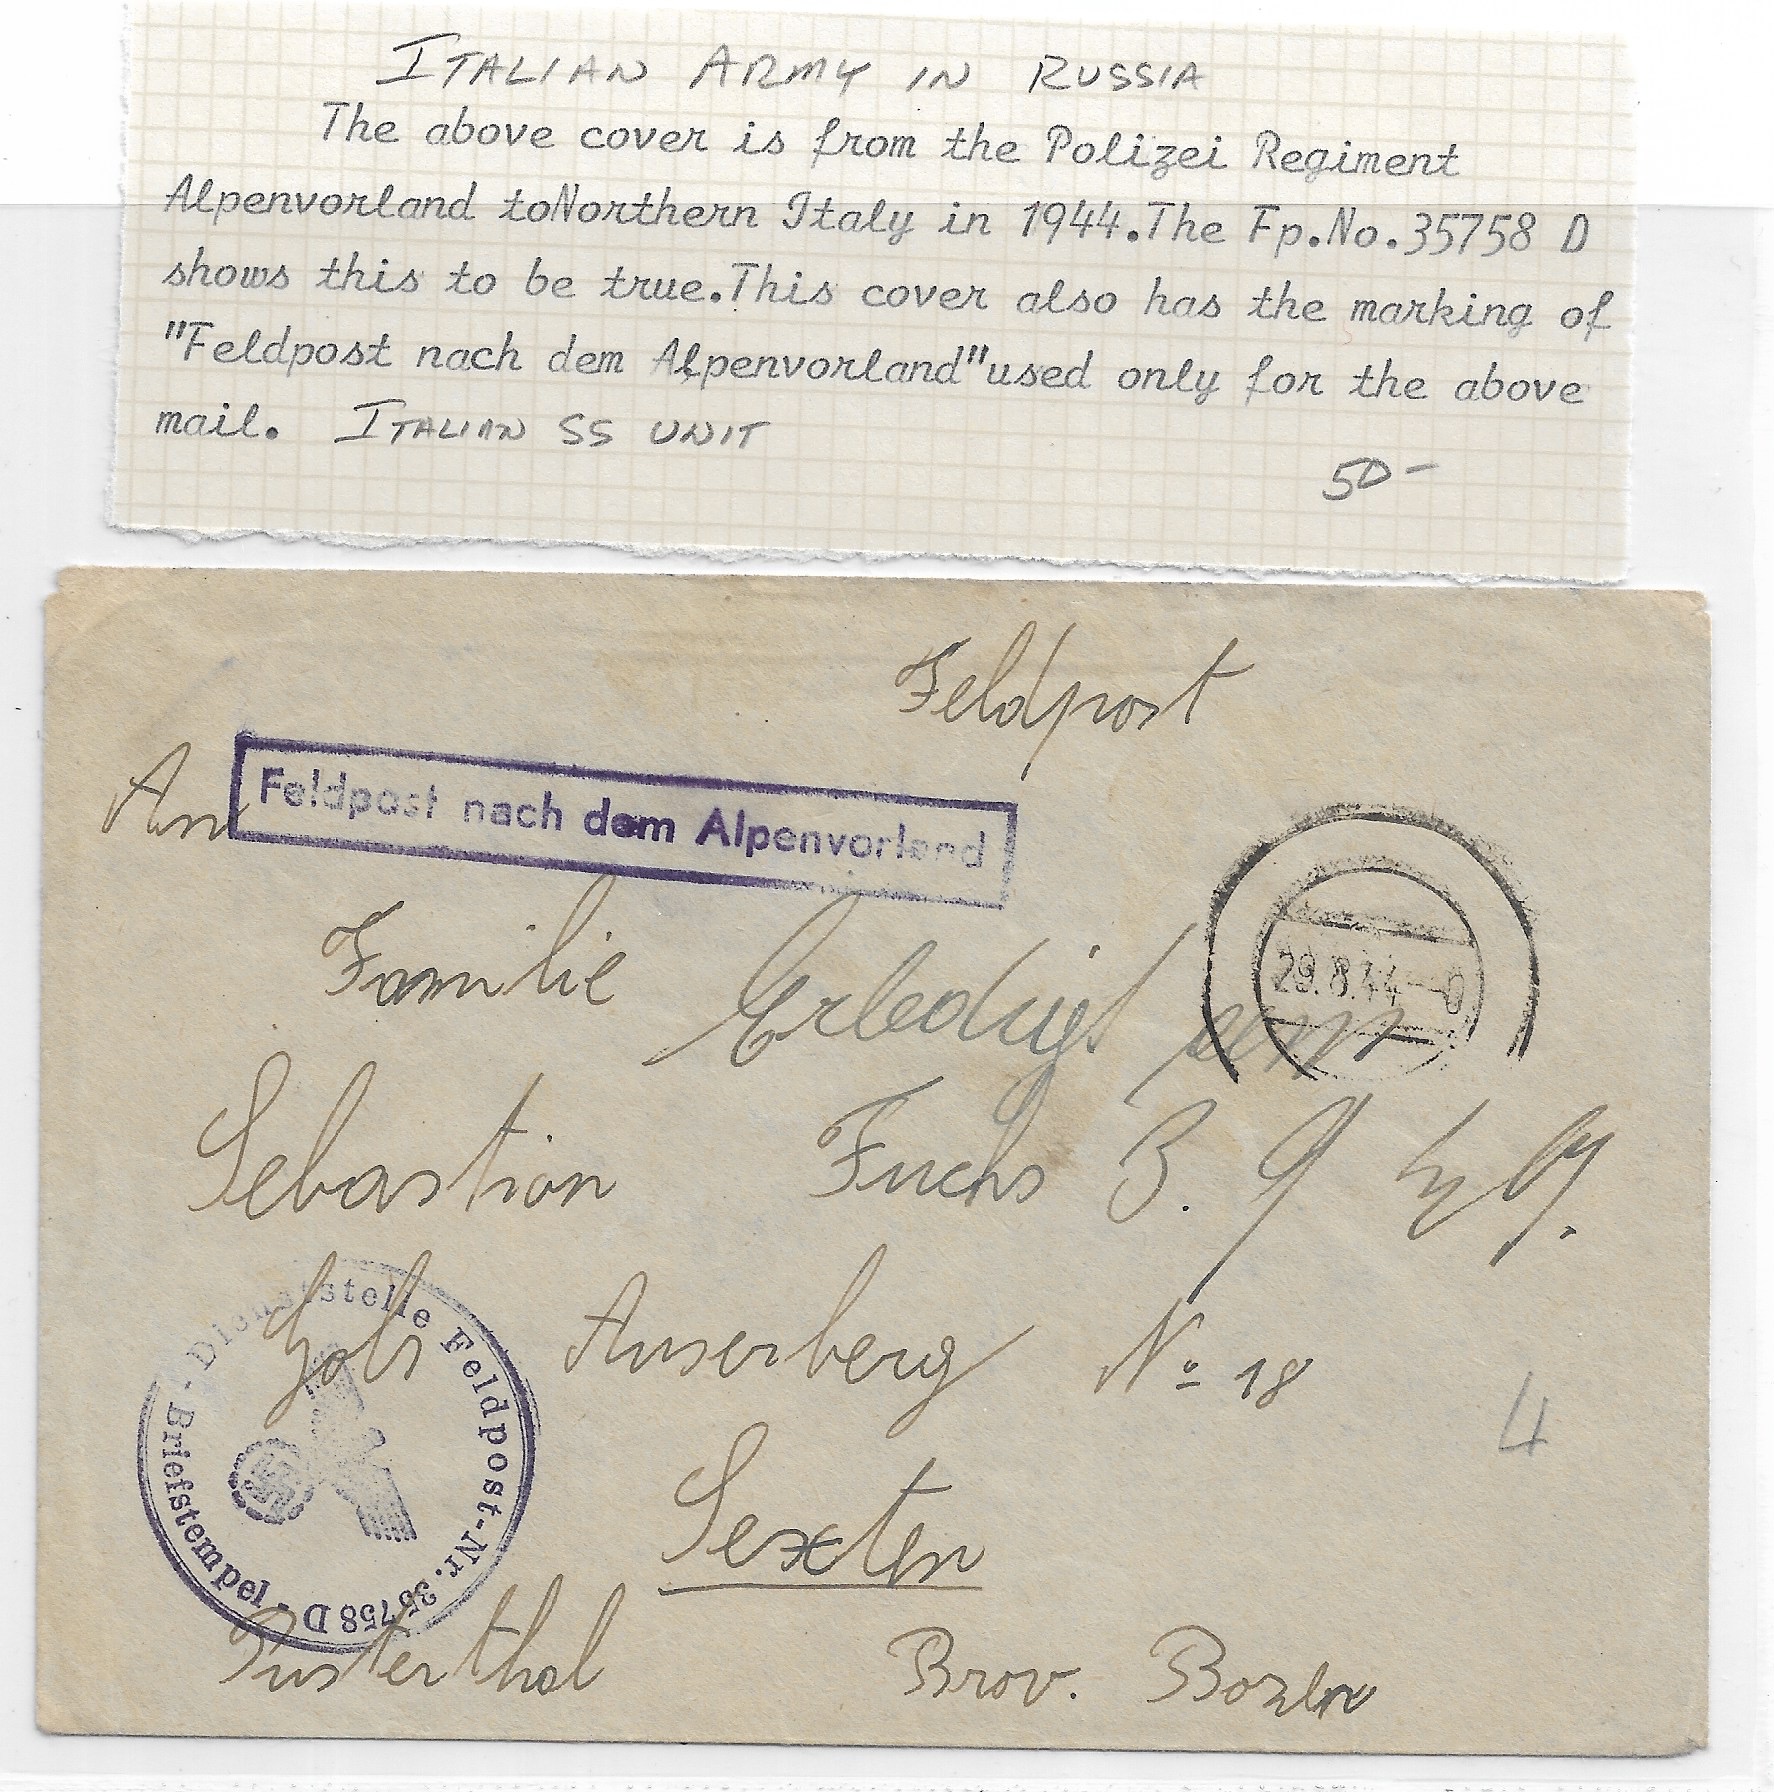 ITALIAN ARMY IN RUSSIA
The above cover is from the Polizei Regiment
Alpenvorland toNorthern Italy in 1944.The Fp.No.35758 D
shows this to be true.This cover also has the marking of
"Feldpost nach dem Alpenvorland"used only for the above
mail. ITALIAN SS UNIT
50-
Feldpost
An
Feldpost nach dem Alpenvorland
29.8.44
Familie
Erledigt
Sebastian Fuchs
Auserberg No 18
4
Sexten
Pusterthal Brov. Bozen
Dienststelle Feldpost-Nr. 35758 D
- Briefstempel -